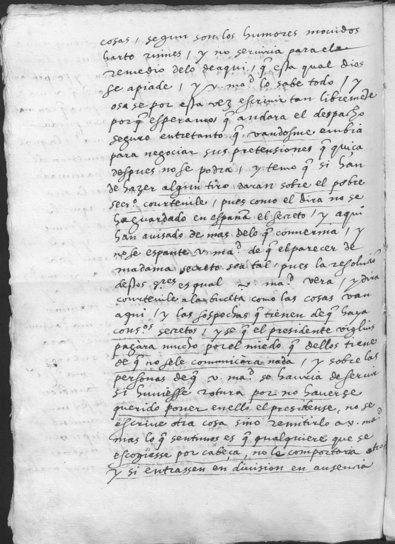 cosas, segun son los humores movidos
harto ruines, y no serviria para el
remedio delo deaqui, q̃ esta qual dios
se apiade, y v. mag.ᵈ lo sabe todo, y
osase por esta vez escrivir tan libremēte
porq̃ esperamos q̃ andara el despacho
seguro entretanto q̃ vandosme embia
para negociar sus pretensiones q̃ quiça
despues no se podra, y temo q̃ si han
de hazer algun tiro daran sobre el pobre
secr.º courtevile, pues como el dira no se
ha guardado en españa el secreto, y aqui
han avisado de mas delo q̃ convernia, y
no se espante v. ma.ᵈ de q̃ el parecer de
madama secreto sea tal, pues la resolucion
destos s.ʳᵉˢ es qual v. ma.ᵈ vera, y dira
courtevile ala buelta como las cosas van
aqui, y las sospechas q̃ tienen de q̃ haya
cons.ᵒˢ secretos, y se q̃ el presidente viglius
pagara mucho por el miedo q̃ dellos tiene
de q̃ no sele comunicara nada, y sobre las
personas de q̃ v. ma.ᵈ se havria de servir
si huviesse rotura por no haverse
querido poner en ello el presidente, no se
escrive otra cosa sino remitirlo a v. ma.ᵈ
mas lo q̃ sentimos es q̃ qualquiere que se
escogiesse por cabeça, no le comportara
y si entrassen en division en ausencia